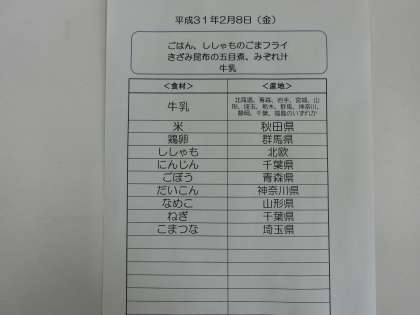 平成31年2月8日（金）
ごはん、ししゃものごまフライ
きざみ昆布の五目煮、みぞれ汁
牛乳
＜食材＞ ＜産地＞
牛乳 北海道、青森、岩手、宮城、山
形、埼玉、栃木、群馬、神奈川、
静岡、千葉、福島のいずれか
米 秋田県
鶏卵 群馬県
ししゃも 北欧
にんじん 千葉県
ごぼう 青森県
だいこん 神奈川県
なめこ 山形県
ねぎ 千葉県
こまつな 埼玉県